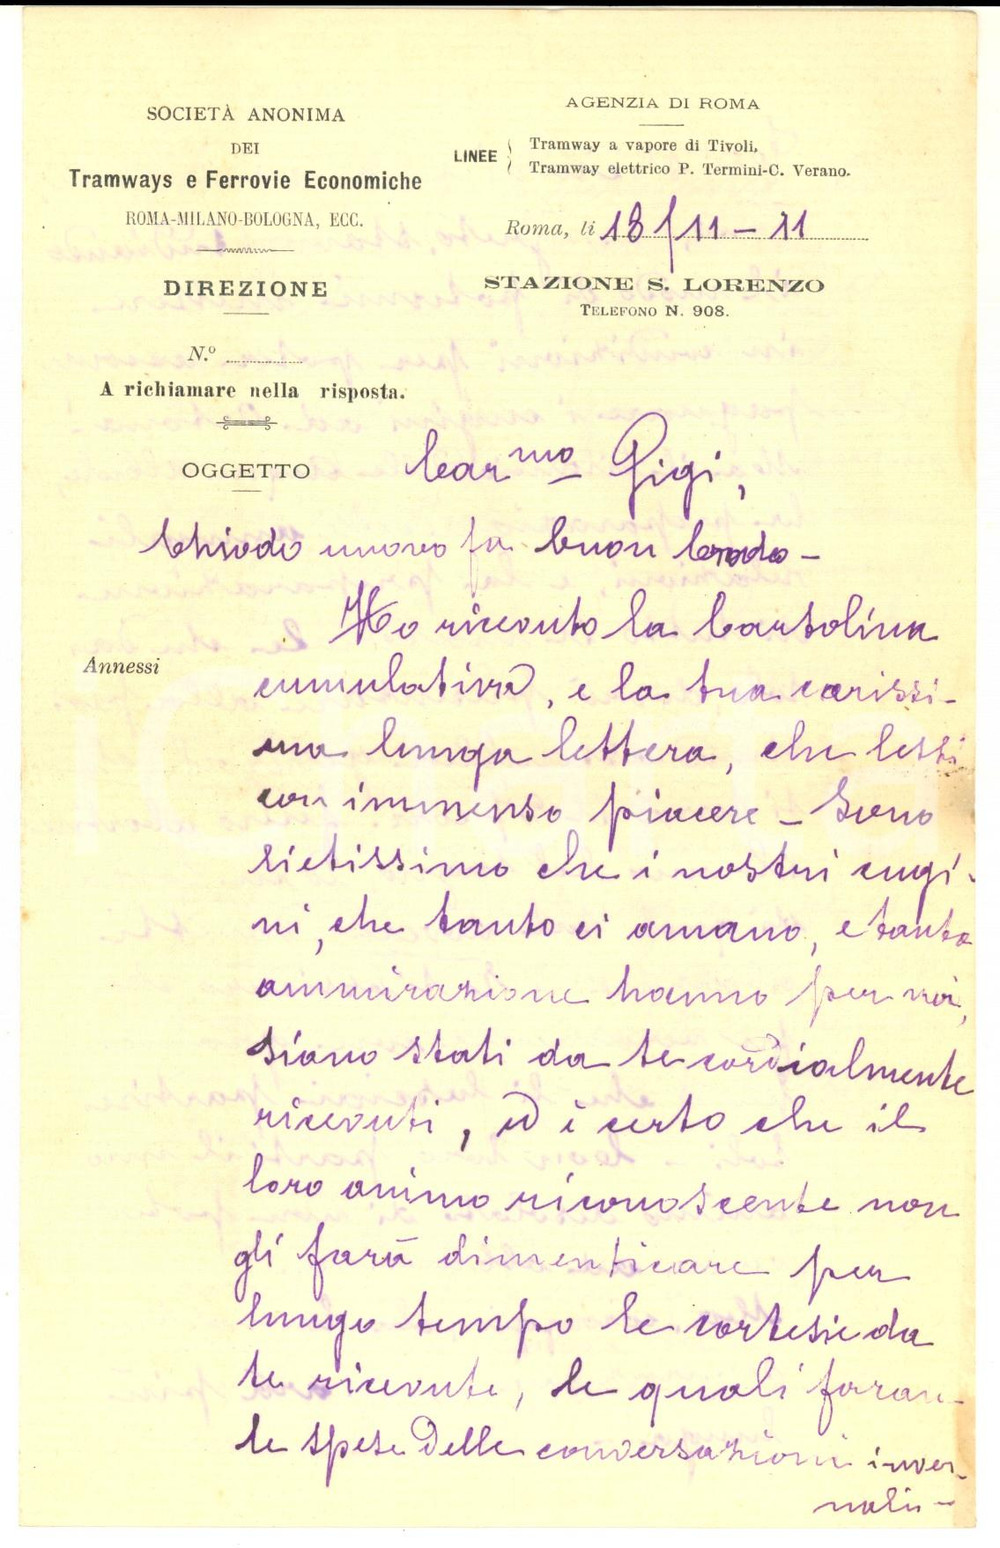 SOCIETÀ ANONIMA
DEI
Tramways e Ferrovie Economiche
ROMA-MILANO-BOLOGNA, ECC.
DIREZIONE
N.º
A richiamare nella risposta.
OGGETTO
AGENZIA DI ROMA
LINEE
Tramway a vapore di Tivoli.
Tramway elettrico P. Termini-C. Verano.
Roma, li 18/11-11
STAZIONE S. LORENZO
TELEFONO N. 908.
Carmo Gigi,
Chiodo nuovo fa buon brodo -
Annessi
Ho ricevuto la Cartolina
cumulativa, e la tua carissi-
ma lunga lettera, che lessi
con immenso piacere - Sono
lietissimo che i nostri cugi-
ni, che tanto ci amano, e tanta
ammirazione hanno per noi,
siano stati da te cordialmente
ricevuti, ed è certo che il
loro animo riconoscente non
gli farà dimenticare per
lungo tempo le cortesie da
te ricevute, le quali faran-
le spese delle conversazioni inver-
nali -